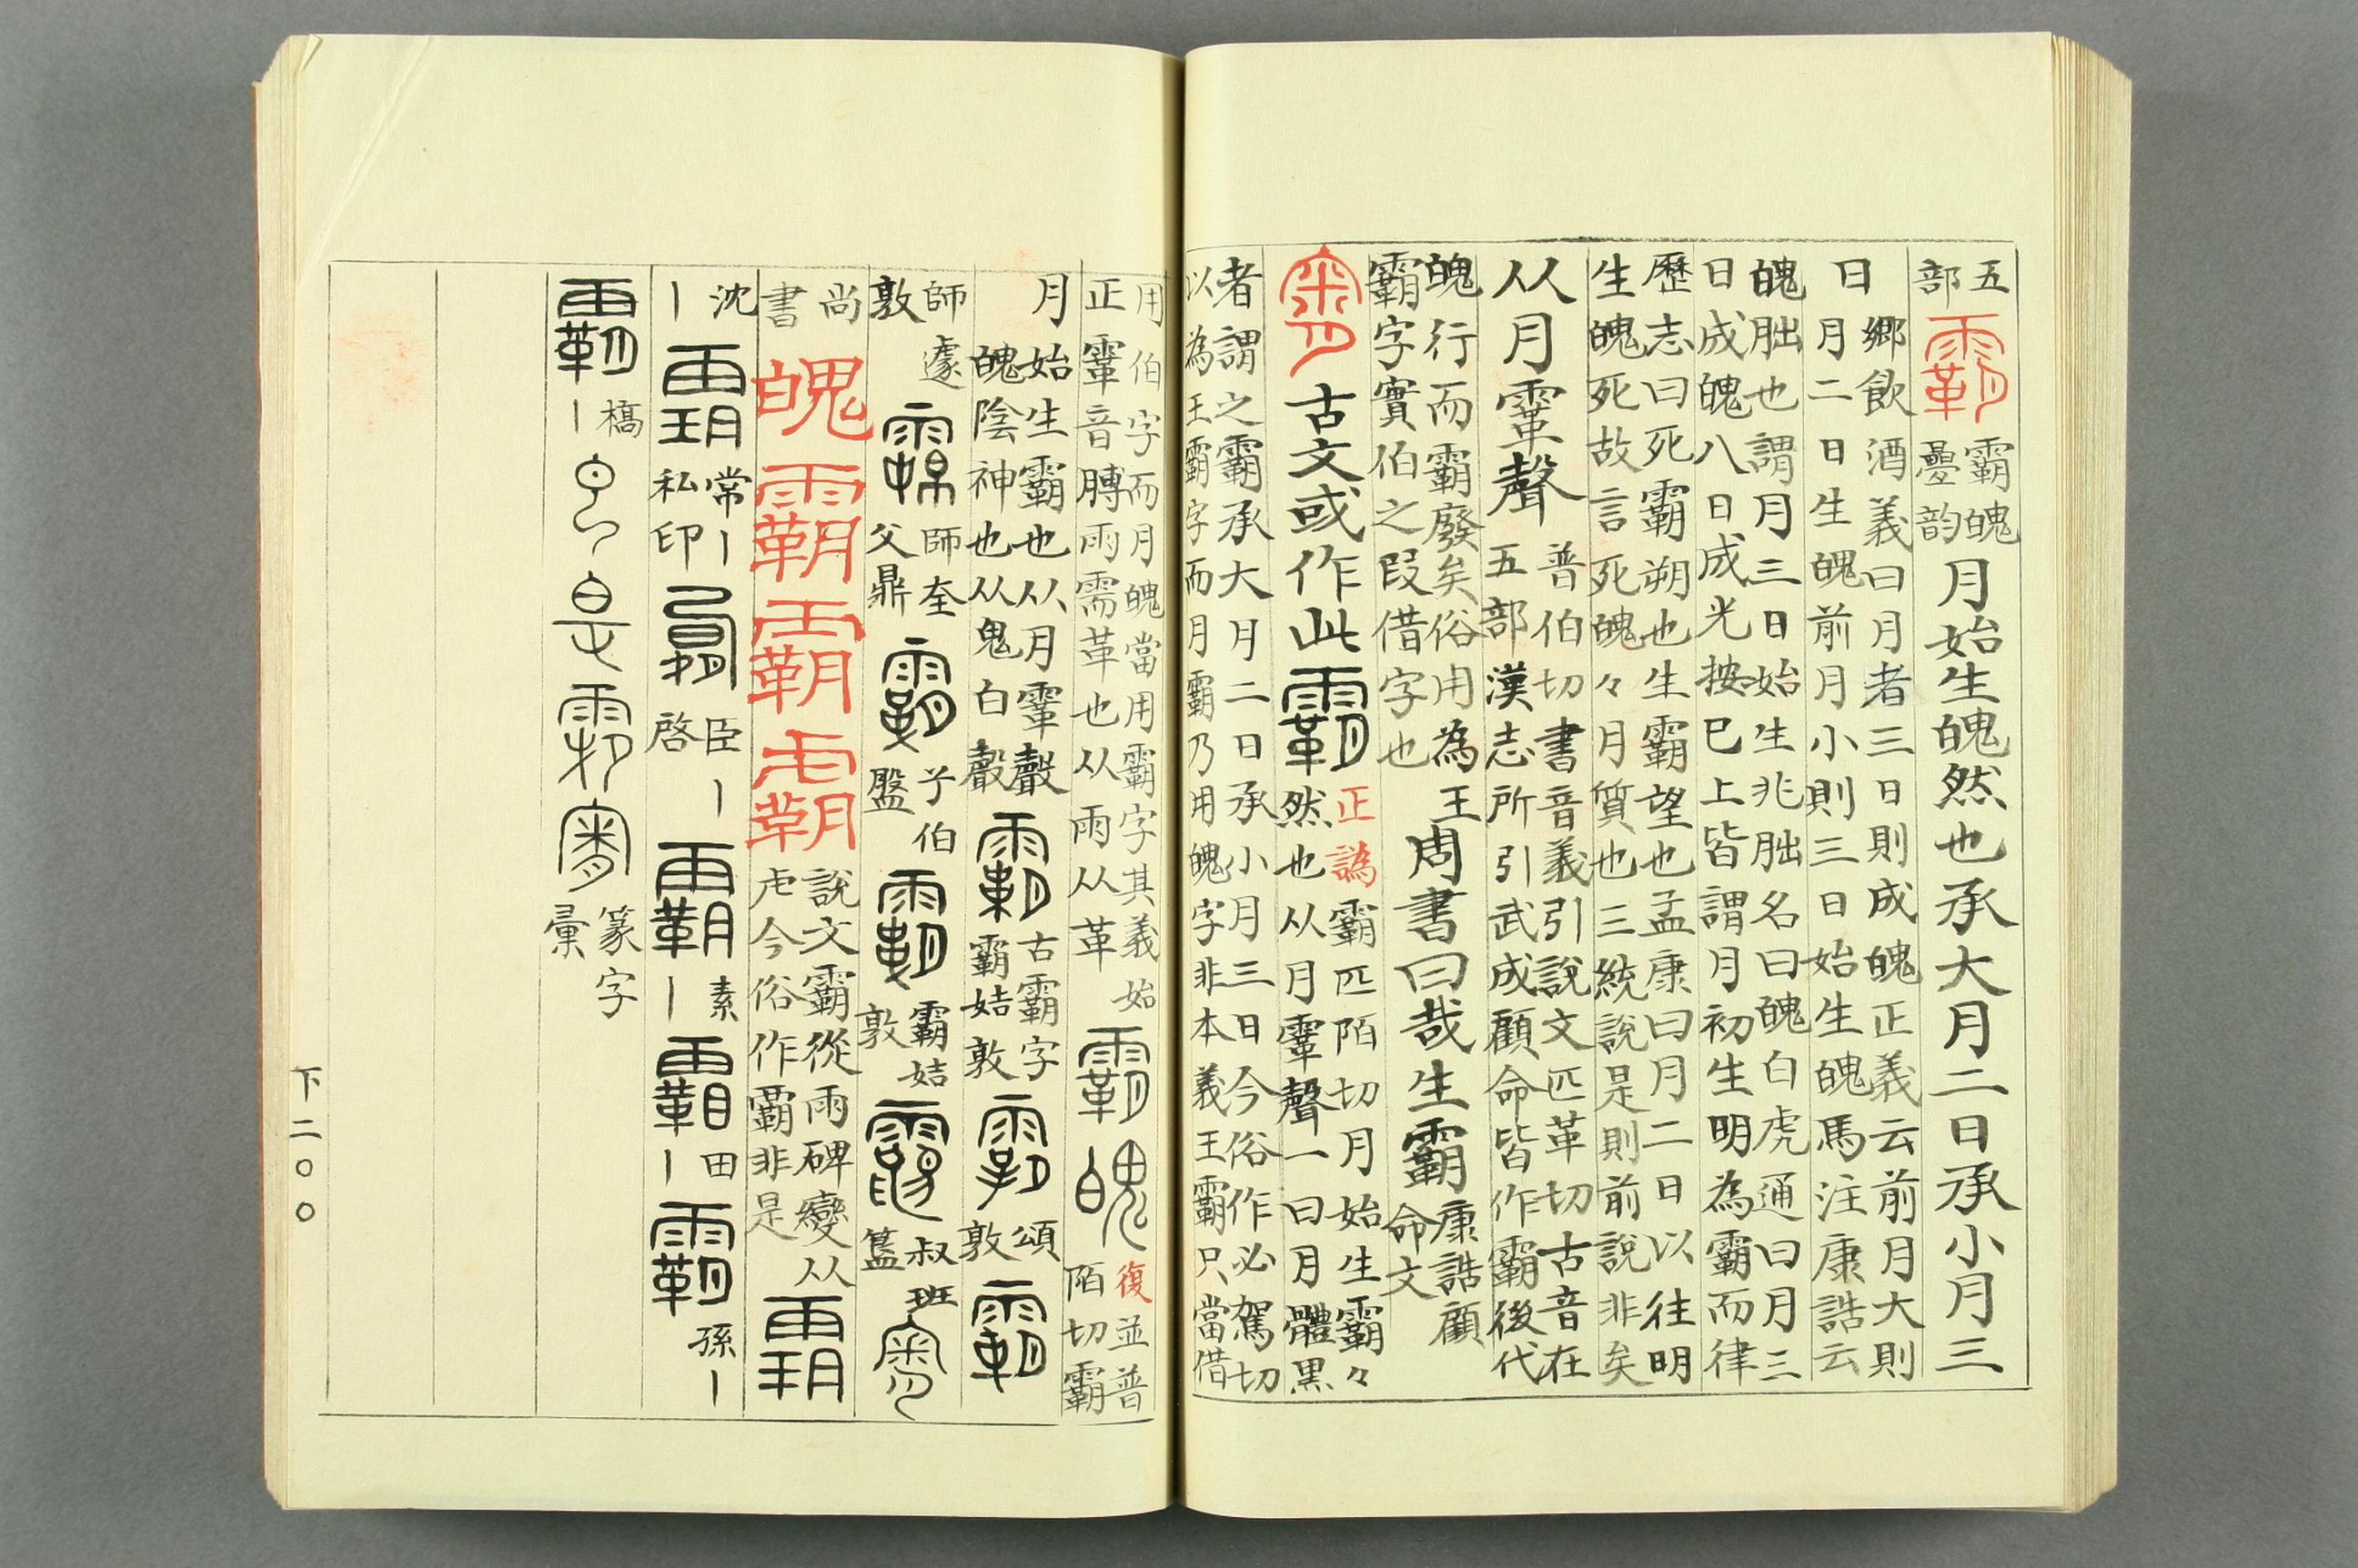 五部 霸 霸魄
疊韵
月始生魄然也承大月二日承小月三
日
鄉飲酒義曰月者三日則成魄正義云前月大則
月二日生魄前月小則三日始生魄馬注康誥云
魄朏也謂月三日始生兆朏名曰魄白虎通曰月三
日成魄八日成光按已上皆謂月初生明為霸而律
歷志曰死霸朔也生霸望也孟康曰月二日以往明
生魄死故言死魄々月質也三統說是則前說非矣
从月䨣聲
普伯切書音義引說文匹革切古音在
五部漢志所引武成顧命皆作霸後代
魄行而霸廢矣俗用為王
霸字實伯之叚借字也
周書曰哉生霸
康誥顧
命文
古文或作此霸
正譌 霸匹陌切月始生霸々
然也从月䨣聲一曰月體黑
者謂之霸承大月二日承小月三日今俗作必駕切
以為王霸字而月霸乃用魄字非本義王霸只當借
用伯字而月魄當用霸字其義始
正䨣音膊雨濡革也从雨从革
霸 魄
復 並普
陌切霸
月始生霸也从月䨣聲
魄陰神也从鬼白聲
霸
古霸字
霸姞敦
霸
頌
敦
霸
師遽
敦
霸
師奎
父鼎
霸
兮伯
盤
霸
霸姞
敦
霸
叔班
簋
尚
書
魄霸霸
說文霸從雨碑變从
虍今俗作覇非是
霸
沈丨
霸
常丨
私印
霸
臣丨
啓
霸
素丨
霸
田丨
霸
孫丨
霸
橋丨
篆字
彙
下二〇〇